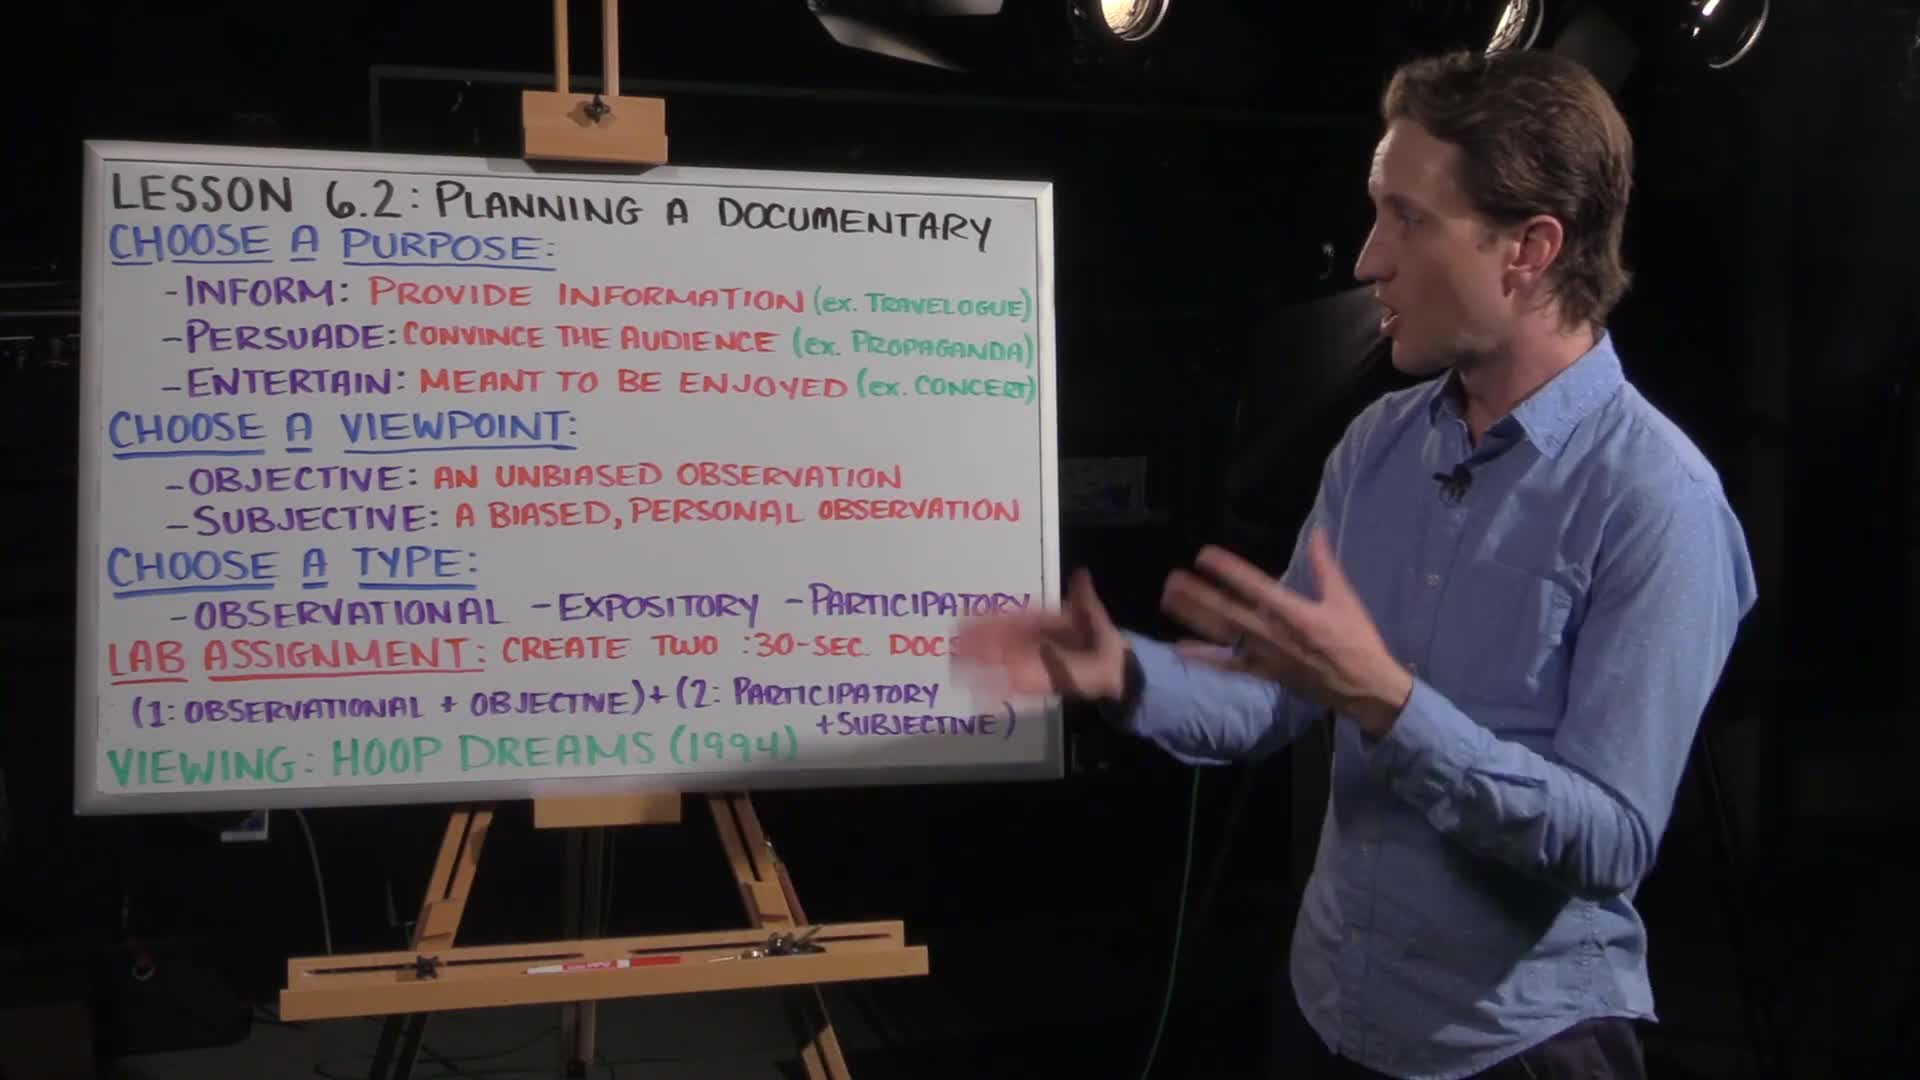 LESSON 6.2: PLANNING A DOCUMENTARY
CHOOSE A PURPOSE:
-INFORM: PROVIDE INFORMATION (ex. TRAVELOGUE)
-PERSUADE: CONVINCE THE AUDIENCE (ex. PROPAGANDA)
-ENTERTAIN: MEANT TO BE ENJOYED (ex. CONCERT)
CHOOSE A VIEWPOINT:
-OBJECTIVE: AN UNBIASED OBSERVATION
-SUBJECTIVE: A BIASED, PERSONAL OBSERVATION
CHOOSE A TYPE:
-OBSERVATIONAL -EXPOSITORY -PARTICIPATORY
LAB ASSIGNMENT: CREATE TWO :30-SEC. DOCS
(1: OBSERVATIONAL + OBJECTIVE) + (2: PARTICIPATORY
+SUBJECTIVE)
VIEWING: HOOP DREAMS (1994)